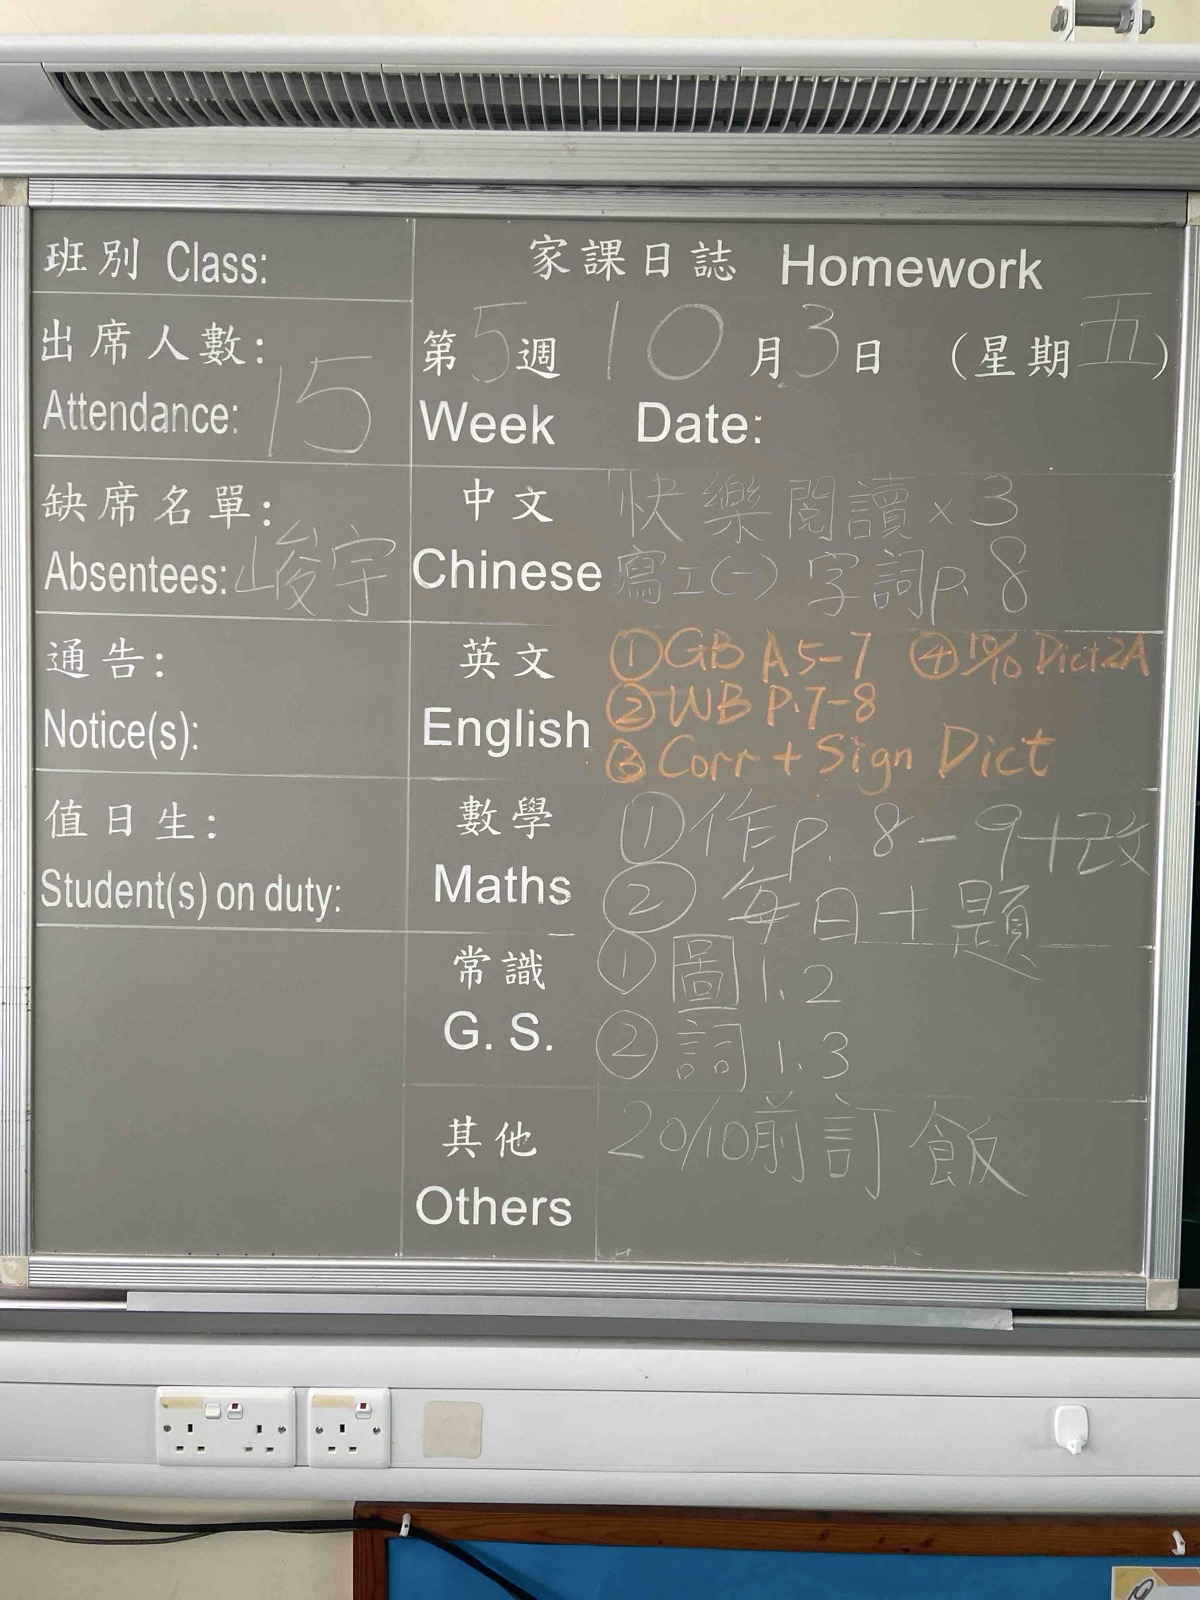 班別 Class:
出席人數:
Attendance: 15
缺席名單:
Absentees: 峻宇
通告:
Notice(s):
值日生:
Student(s) on duty:
家課日誌 Homework
第5週 10月3日 (星期五)
Week Date:
中文 快樂閱讀×3
Chinese 寫工(一) 字詞p. 8
英文 ①GB A5-7 ④10/10 Dict 2A
②WB P.7-8
English ③Corr + Sign Dict
數學 ①作p. 8-9+改
Maths ②每日十題
常識 ①圖1.2
G. S. ②詞1.3
其他 20/10前訂飯
Others